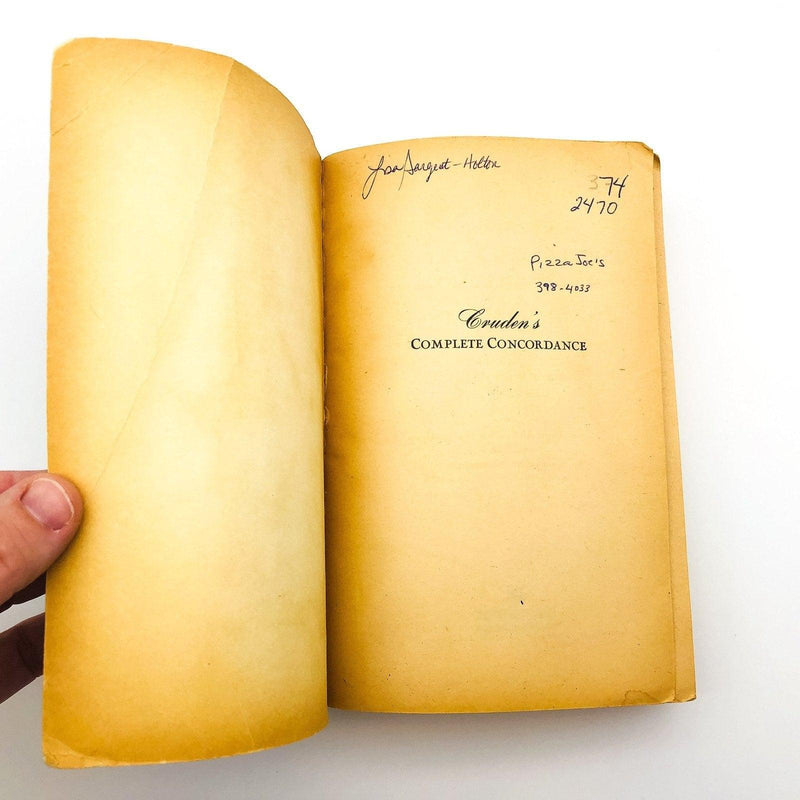 Lisa Sargent-Holton
374
2470
Pizza Joe's
398-4033
Cruden's
COMPLETE CONCORDANCE